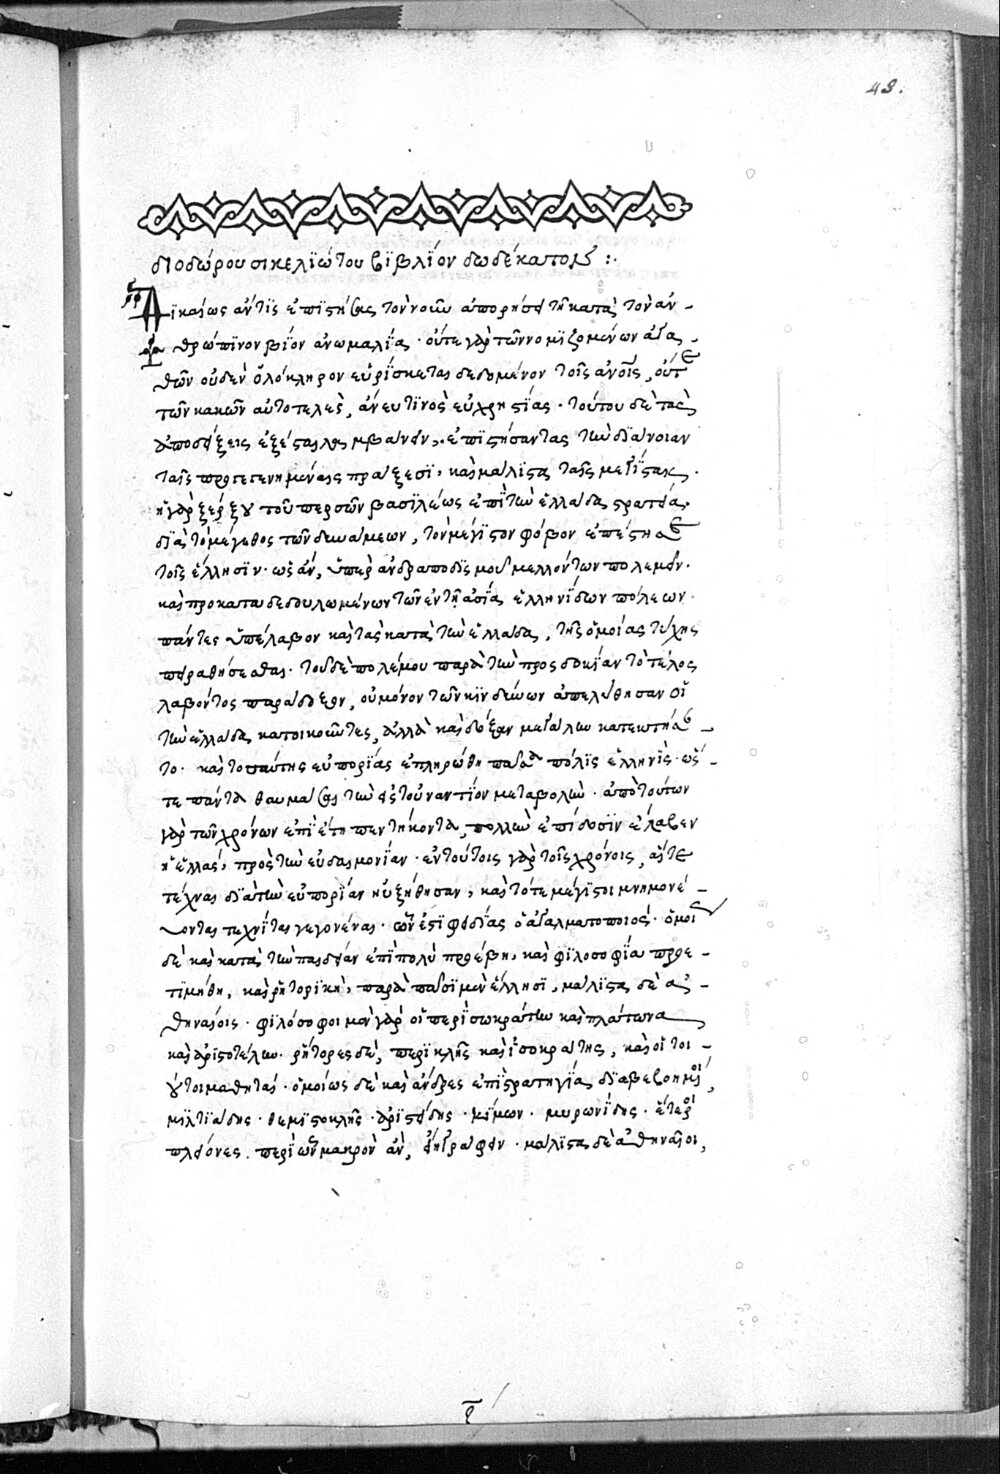 48.
διοδώρου σικελιώτου βιβλίον δωδέκατον :·
Δικαίως ἄν τις ἐπιστήσας τὸν νοῦν ἀπορήσειε τῇ κατὰ τὸν ἀν-
θρώπινον βίον ἀνωμαλίᾳ· οὔτε γὰρ τῶν νομιζομένων ἀγα-
θῶν οὐδὲν ὁλόκληρον εὑρίσκεται δεδομένον τοῖς ἀνοις, οὔτε
τῶν κακῶν αὐτοτελὲς, ἄνευ τινὸς εὐχρηστίας· τούτου δὲ τὰς
ἀποδείξεις ἔξεστι λαμβάνειν, ἐπιστήσαντας τὴν διάνοιαν
ταῖς προγεγενημέναις πράξεσι, καὶ μάλιστα ταῖς μεγίσταις·
ἡ γὰρ ξέρξου τοῦ περσῶν βασιλέως ἐπὶ τὴν ἑλλάδα στρατεία,
διὰ τὸ μέγεθος τῶν δυνάμεων, τὸν μέγιστον φόβον ἐπέστησε
τοῖς ἕλλησιν· ὡς ἂν, ὑπὲρ ἀνδραποδισμοῦ μελλόντων πολεμεῖν·
καὶ προκαταδεδουλωμένων τῶν ἐν τῇ ἀσίᾳ ἑλληνίδων πόλεων·
πάντες ὑπέλαβον καὶ τὰς κατὰ τὴν ἑλλάδα, τῆς ὁμοίας τύχης
πειραθήσεσθαι· τοῦ δὲ πολέμου παρὰ τὴν προσδοκίαν τὸ τέλος
λαβόντος παράδοξον, οὐ μόνον τῶν κινδύνων ἀπελύθησαν οἱ
τὴν ἑλλάδα κατοικοῦντες, ἀλλὰ καὶ δόξαν μεγάλην κατεκτήσαν-
το· καὶ τοσαύτης εὐπορίας ἐπληρώθη πᾶσα πόλις ἑλληνὶς· ὥσ-
τε πάντας θαυμάσαι τὴν εἰς τοὐναντίον μεταβολὴν· ἀπὸ τούτων
γὰρ τῶν χρόνων ἐπὶ ἔτη πεντήκοντα, πολλὴν ἐπίδοσιν ἔλαβεν
ἡ ἑλλὰς, πρὸς τὴν εὐδαιμονίαν· ἐν τούτοις γὰρ τοῖς χρόνοις, αἵ τε
τέχναι διὰ τὴν εὐπορίαν ηὐξήθησαν, καὶ τότε μέγιστοι μνημονεύ-
ονται τεχνῖται γεγονέναι· ὧν ἐστι φειδίας ὁ ἀγαλματοποιός· ὁμοίως
δὲ καὶ κατὰ τὴν παιδείαν ἐπὶ πολὺ προέβη, καὶ φιλοσοφία προε-
τιμήθη, καὶ ῥητορικὴ, παρὰ πᾶσι μὲν ἕλλησι, μάλιστα δὲ ἀ-
θηναίοις· φιλόσοφοι μὲν γὰρ οἱ περὶ σωκράτην καὶ πλάτωνα
καὶ ἀριστοτέλην· ῥήτορες δὲ, περικλῆς καὶ ἰσοκράτης, καὶ οἱ τού-
του μαθηταί· ὁμοίως δὲ καὶ ἄνδρες ἐπὶ στρατηγίᾳ διαβεβοημένοι,
μιλτιάδης· θεμιστοκλῆς· ἀριστείδης· κίμων· μυρωνίδης· ἕτεροί
πλείονες· περὶ ὧν μακρὸν ἂν, εἴη γράφειν· μάλιστα δὲ ἀθηναῖοι,